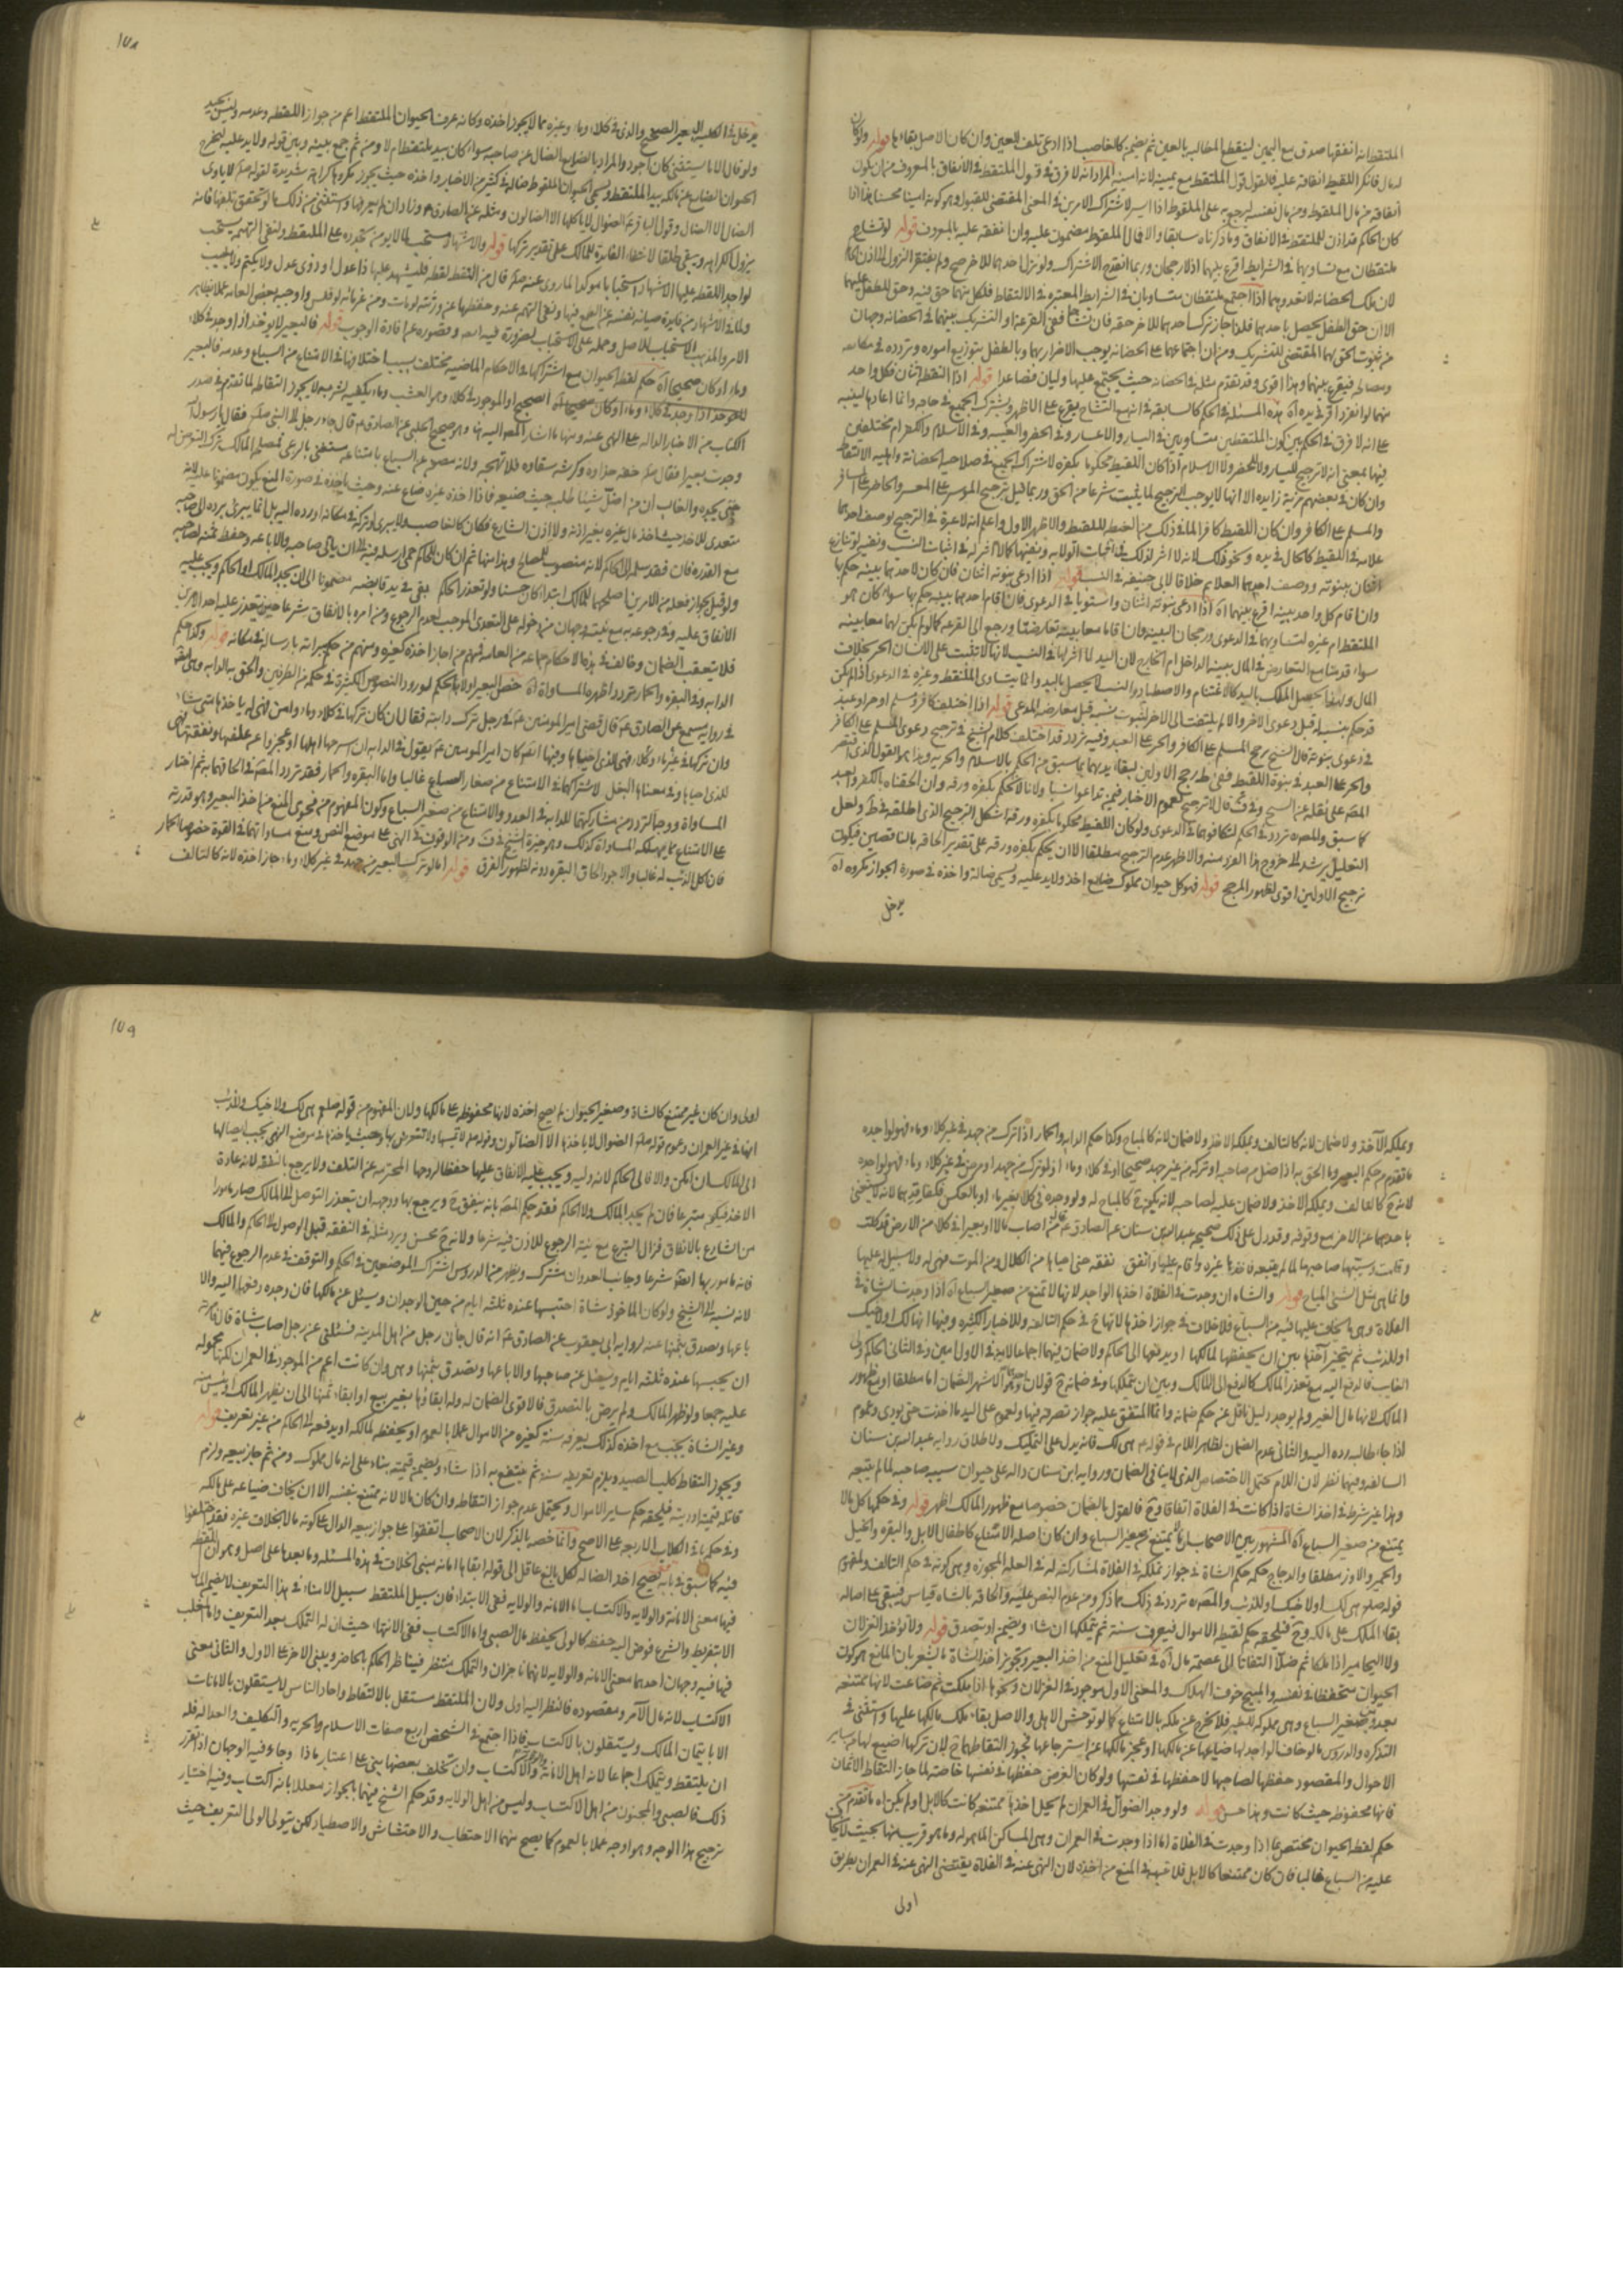 الملتقط انه انفقها صدق مع اليمين لينقطع المطالب بالعين ثم يضمنه كالغاصب اذا ادعى تلف العين وان كان الاصل بقاءها قوله ولو كان
له مال فانكر اللقيط انفاقه عليه فالقول قول الملتقط مع يمينه لانه امينه المراد انه لا فرق في قبول الملتقط في الانفاق بالمعروف من ان يكون
انفاقه من مال الملقوط ومن مال نفسه ليرجع به على الملقوط اذا ايسر لاشتراك الامرين في المعنى المقتضي للقبول وهو كونه امينا محسنا
كان الحاكم قد اذن للملتقط في الانفاق وما ذكرناه سابقا والا فمال الملقوط مضمون عليه وان انفقه عليه بالمعروف قوله لو تشاح
ملتقطان مع تساويهما في الشرايط اقرع بينهما اذ لا رجحان وربما انقدح الاشتراك ولو نزل احدهما للاخر صح ولم يفتقر النزول الى اذن الحاكم
لان ملك الحضانه لا تعدوهما اذا اجتمع ملتقطان متساويان في الشرايط المعتبره في الالتقاط فلكل منهما حق فيه وحق للطفل عليهما
الا ان حق الطفل يحصل باحدهما فلذا جاز ترك احدهما للاخر حقه فان تشاحا ففي القرعة او التشريك بينهما في الحضانه وجهان
من ثبوت الحق لهما المقتضي للتشريك ومن ان اجتماعهما على الحضانه يوجب الاضرار بهما وبالطفل بتوزيع اموره وتردده في مكانه
ومصالحه فيقرع بينهما وهذا اقوى وقد تقدم مثله في الحضانه حيث يجتمع عليها وليان فصاعدا قوله اذا التقطه اثنان فكل واحد
منهما لو انفرد اقر في يده اه هذه المسئله في الحكم كالسابقه في انه مع التشاح يقرع على الاظهر ويشترك الجميع في حاجه وانما اعادها لينبه
على انه لا فرق في الحكم بين كون الملتقطين متساويين في اليسار والاعسار وفي الحضر والغيبه وفي الاسلام والكفر ام مختلفين
فيهما بمعنى انه لا ترجيح لليسار ولا للحضر ولا الاسلام اذا كان اللقيط محكوما بكفره لاشتراك الجميع في صلاحيه الحضانة واهليه الالتقاط
وان كان في بعضهم مزية زايده الا انها لا يوجب الترجيح لما يثبت شرعا من الحق وربما قيل بترجيح الموسر على المعسر والحاضر على المسافر
والمسلم على الكافر وان كان اللقيط كافرا لما في ذلك من الحظ للقيط والاظهر الاول واعلم انه لا عبرة في الترجيح بوصف احدهما
علامه في اللقيط كالخال في يده ونحو ذلك لانه لا اثر لذلك في اثبات الولايه ونفيها كما لا اثر له في اثبات النسب ونفيه لو تنازع
اثنان ببنوته ووصف احدهما العلايم خلافا لابي حنيفه في النسب قوله اذا ادعى بنوته اثنان فان كان لاحدهما بينه حكم بها
وان اقام كل واحد بينه اقرع بينهما اه اذا ادعى بنوته اثنان واستويا في الدعوى فان اقام احدهما بينه حكم بها سواء كان هو
الملتقط ام غيره لتساويهما في الدعوى ورجحان البينه وان اقاما معا بينه تعارضتا ورجع الى القرعه كما لو لم يكن لهما معا بينه
سواء قدمنا مع التعارض في المال بينه الداخل ام الخارج لان اليد لا اثر لها في النسب لانها لا تثبت على الانسان الحر بخلاف
المال ولهذا يحصل الملك باليد كالاغتنام والاصطياد والنسب لا يحصل باليد وانما يتساوى الملتقط وغيره في الدعوى اذا لم يكن
قد حكم بنسبه له قبل دعوى الاخر والا لم يلتفت الى الاخر لثبوت نسبه قبل معارضه المدعي قوله اذا اختلف كافر ومسلم او حر وعبد
في دعوى بنوته قال الشيخ يرجح المسلم على الكافر والحر على العبد وفيه تردد قد اختلف كلام الشيخ في ترجيح دعوى المسلم على الكافر
والحر على العبد في بنوة اللقيط ففي ط رجح الاولين لبقاء يدهما بما سبق من الحكم بالاسلام والحريه وهذا هو القول الذي اقتصر
المصه على نقله عن الشيخ وفي ف قال لا ترجيح لعموم الاخبار فيمن تداعوا نسبا ولانا لا نحكم بكفره ورقه وان الحقناه بالكافر والعبد
كما سبق والمصه تردد في الحكم لتكافوهما في الدعوى ولو كان اللقيط محكوما بكفره ورقه اشكل الترجيح الذي اطلقه في ط ولعل
التعليل يرشد الى خروج هذا الفرد منه والاظهر عدم الترجيح مطلقا الا ان يحكم بكفره ورقه على تقدير الحاقه بالناقصين فيكون
ترجيح الاولين اقوى لظهور المرجح قوله فهو كل حيوان مملوك ضايع اخذ ولا يد عليه ويسمى ضالة واخذه في صورة الجواز مكروه اه
يدخل
١٧٨
يدخل في الكليه البعير الصحيح والذي في كلاء وماء وغيره مما لا يجوز اخذه وكانه عرف الحيوان الملتقط اعم من جواز اللقطه وعدمه وليس بجيد
ولو قال الا ما يستثنى كان اجود والمراد بالضايع الضال عن صاحبه سواء كان بيد ملتقط ام لا ومن ثم جمع بينه وبين قوله ولا يد عليه ليخرج
الحيوان الضايع عن مالكه بيد الملتقط ويسمى الحيوان الملقوط ضاله في كثير من الاخبار واخذه حيث يجوز مكروه كراهة شديدة لقوله صلم لا ياوي
الضال الا الضال وقول الباقر عم الضوال لا ياكلها الا الضالون ومثله عن الصادق عم وزاد ان لم يعرفها ويستثنى من ذلك ما لو تحقق تلفها فانه
يزول الكراهه ويبقى طلقا لانتفاء الفايدة للمالك على تقدير تركها قوله والاشهاد مستحب لما لا يومن تجدده على الملتقط ولنفي التهمه يستحب
لواجد اللقطه عليها الاشهاد استحبابا موكدا لما روي عنه صلم قال من التقط لقطه فليشهد عليها ذا عدل او ذوي عدل ولا يكتم ولا يغيب
ولما في الاشهاد من فايدة صيانه نفسه عن الطمع فيها ونفي التهم عنه وحفظها عن ورثته لو مات ومن غرمائه لو فلس واوجبه بعض العامه عملا بظاهر
الامر والمذهب الاستحباب للاصل وحمله على الاستحباب لضروره فيه وقصوره عن افادة الوجوب قوله فالبعير لا يوخذ اذا وجد في كلاء
وماء او كان صحيحا اه حكم لقط الحيوان مع اشتراكها في الاحكام الماضيه مختلف بسبب اختلافها في الامتناع من السباع وعدمه فالبعير
لا يوخذ اذا وجد في كلاء وماء او كان صحيحا اه الصحيح او الموجود في كلاء وهو العشب وماء يكفيه لشربه لا يجوز التقاطه لما تقدم في صدر
الكتاب من الاخبار الداله على النهي عنه ومنها ما اشار المصه اليه هنا وهو صحيح الحلبي عن الصادق عم قال جاء رجل الى النبي صلم فقال يا رسول الله
وجدت بعيرا فقال صلم خفه حذاوه وكرشه سقاوه فلا تهجه ولانه مصون عن السباع بامتناعه مستغنى بالرعي فمصلحه المالك ترك التعرض له
حتى يجده والغالب ان من اضل شيئا طلبه حيث ضيعه فاذا اخذه غيره ضاع عنه وحيث ياخذه في صورة المنع يكون مضمونا عليه لانه
متعدى للاخذ حيث اخذ مال غيره بغير اذنه ولا اذن الشارع فكان كالغاصب ولا يبرى لو تركه في مكانه او رده اليه بل انما يبرى برده الى صاحبه
مع القدره فان فقد سلمه الى الحاكم لانه منصوب للمصالح وهذا منها ثم ان كان للحاكم حمى ارسله فيه الى ان ياتي صاحبه والا باعه وحفظ ثمنه لصاحبه
ولو قيل بجواز فعله من الامرين اصلحهما للمالك ابتداء كان حسنا ولو تعذر الحاكم بقي في يد قابضه مضمونا الى ان يجد المالك او الحاكم ويجب عليه
الانفاق عليه وفي رجوعه به مع نيته وجهان من دخوله على التعدي الموجب لعدم الرجوع ومن امره بالانفاق شرعا حين يتعذر عليه احد الامرين
فلا يتعقب الضمان وخالف في بعض هذه الاحكام جماعه من العامه فمنهم من اجاز اخذه كغيره ومنهم من حكم ببراته بارساله في مكانه قوله وكذا حكم
الدابه وفي البقره والحمار تردد اظهره المساواة اه خص البعير اولا بالحكم لورود النصوص الكثيرة في حكمه من الطرفين والحق به الدابه وهي الفرس
في رواية مسمع عن الصادق عم قال قضى امير المومنين عم في رجل ترك دابته فقال ان كان تركها في كلاء وماء وامن فهي له ياخذها متى شاء
وان تركها في غير ماء وكلاء فهي للذي احياها وعنه ايضا انه كان امير المومنين عم يقول في الدابه ان سرحها اهلها او عجزوا عن علفها ونفقتها فهي
للذي احياها وفي معناها البغل لاشتراكها في الامتناع من صغار السباع غالبا واما البقره والحمار فقد تردد المصه في الحاقهما به ثم اختار
المساواة ووجه التردد من مشاركتهما للدابه في العدو والامتناع من صغير السباع وكون المفهوم من فحوى المنع من اخذ البعير وهو قدرته
على الامتناع مما يهلكه المساواة كذلك وهو خيرة الشيخ في ف ومن الوقوف في النهي على موضع النص ومنع مساواتهما في القوة خصوصا الحمار
فان اكل الذئب له غالبا والاجود الحاق البقره دونه لظهور الفرق قوله اما لو ترك البعير من جهد في غير كلاء وماء جاز اخذه لانه كالتالف
ويملكه الآخذ ولا ضمان لانه كالتالف ويملكه الاخذ ولا ضمان لانه كالمباح وكذا حكم الدابه والحمار اذا ترك من جهد في غير كلاء وماء فهو لواجده
ما تقدم من حكم البعير وما الحق به اذا ضل من صاحبه او تركه من غير جهد صحيحا او في كلاء وماء اذ لو ترك من جهد او مرض في غير كلاء وماء فهو لواجده
لانه ح كالتالف ويملكه الاخذ ولا ضمان عليه لصاحبه لانه يكون ح كالمباح له ولو وجده في كلاء بغير ماء او بالعكس فكفاقدهما لانه لا يستغنى
باحدهما عن الاخر مع وقوفه وقد دل على ذلك صحيح عبد الله بن سنان عن الصادق عم قال من اصاب مالا او بعيرا في فلاة من الارض قد كلت
وقامت وسيبها صاحبها لما لم يتبعه فاخذها غيره واقام عليها وانفق نفقه حتى احياها من الكلال ومن الموت فهي له ولا سبيل له عليها
وانما هي مثل الشي المباح قوله والشاه ان وجدت في الفلاة اخذها الواجد لانها لا تمتنع من صغير السباع اه اذا وجدت الشاة في
الفلاة وهي ما يخاف عليها فيه من السباع فلا خلاف في جواز اخذها لانها ح في حكم التالفه وللاخبار الكثيره ومنها انها لك او لاخيك
او للذئب ثم يتخير آخذها بين ان يحفظها لمالكها او يدفعها الى الحاكم ولا ضمان فيهما اجماعا لانه في الاول امين وفي الثاني الحاكم ولي
الغايب فالدفع اليه مع تعذر المالك كالدفع الى المالك وبين ان يتملكها وفي ضمانه ح قولان احدهما وهو الاشهر الضمان اما مطلقا او مع ظهور
المالك لانها مال الغير ولم يوجد دليل ناقل عن حكم ضمانه وانما المتفق عليه جواز تصرفه فيها ولعموم على اليد ما اخذت حتى يودي وعموم
اذا جاء طالبه رده اليه والثاني عدم الضمان لظاهر اللام في قوله عم هي لك فانه يدل على التمليك ولاطلاق روايه عبد الله بن سنان
السالفه وفيهما نظر لان اللام يحتمل الاختصاص الذي لا ينافي الضمان وروايه ابن سنان داله على حيوان سيبه صاحبه لما لم يتبعه
وهذا غير شرط في اخذ الشاة اذا كانت في الفلاة اتفاقا وح فالقول بالضمان خصوصا مع ظهور المالك اظهر قوله وفي حكمها كل ما لا
يمتنع من صغير السباع اه المشهور بين الاصحاب ان ما لا يمتنع من صغير السباع وان كان اصله الامتناع كاطفال الابل والبقره والخيل
والحمير والاوز مطلقا والدجاج حكمه حكم الشاة في جواز تملكه في الفلاة لمشاركته له في العلة المجوزه وهي كونه في حكم التالف ولفحوى
قوله صلم هي لك او لاخيك او للذئب والمصه تردد في ذلك مما ذكر ومن عدم النص عليه والحاقه بالشاه قياس فيبقى على اصاله
بقاء الملك على مالكه وح فيلحقه حكم لقيط الاموال فيعرف سنة ثم يتملكها ان شاء ويضمن او يتصدق قوله ولا توخذ الغزلان
ولا اليحامير اذا ملكا ثم ضلا التفاتا الى عصمه مال اه في تعليل المنع من اخذ البعير وتجويز اخذ الشاة ما يشعر بان المانع هو كون
الحيوان متحفظا في نفسه والمبيح خوف الهلاك والمعنى الاول موجود في الغزلان ونحوها اذا ملكت ثم ضاعت لانها ممتنعه
بعدوها من صغير السباع وهي مملوكه للغير فلا تخرج عن ملكه بالامتناع كما لو توحش الاهل والاصل بقاء ملك مالكها عليها واستثنى في
التذكره والدروس ما لو خاف الواجد لها ضياعها عن مالكها او عجز مالكها عن استرجاعها فجوز التقاطها ح لان تركها اضيع لها من ساير
الاحوال والمقصود حفظها لصاحبها لا حفظها في نفسها ولو كان الغرض حفظها في نفسها خاصة لما جاز التقاط الاثمان
فانها محفوظه حيث كانت وهذا حسن قوله ولو وجد الضوال في العمران لم يحل اخذها ممتنعه كانت كالابل او لم يكن اه ما تقدم من
حكم لقط الحيوان مختص بما اذا وجدت في الفلاة اما اذا وجدت في العمران وهي المساكن الماهوله وما هو قريب منها بحيث لا يخاف
عليه من السباع غالبا فان كان ممتنعا كالابل فلا شبهه في المنع من اخذه لان النهي عنه في الفلاة يقتضي النهي عنه في العمران بطريق
اولى
١٧٩
اولى وان كان غير ممتنع كالشاة وصغير الحيوان لم يصح اخذه لانها محفوظه على مالكها ولان المفهوم من قوله صلعم هي لك ولاخيك وللذئب
انها في غير العمران وعموم قوله صلم الضوال لا ياخذها الا الضالون وقوله صلم لا تمسها ولا تتعرض بها وحيث ياخذها في موضع النهي يجب ايصالها
الى المالك ان امكن والا فالى الحاكم لانه وليه ويجب عليه الانفاق عليها حفظا لروحها المحترمه عن التلف ولا يرجع بالنفقه لانه عادة
الاخذ فيكون متبرعا فان لم يجد المالك ولا الحاكم فقد حكم المصه بانه ينفق ح ويرجع بها ووجهه ان بتعذر التوصل الى المالك صار مامورا
من الشارع بالانفاق فزال التبرع مع نيته الرجوع للاذن فيه شرعا ولانه ح محسن ويرد مثله في النفقه قبل الوصول الى الحاكم والمالك
فانه مامور بها ايضا شرعا وجانب العدوان مشترك ويظهر من الدروس اشتراك الموضعين في الحكم والتوقف في عدم الرجوع فيهما
لانه نسبه الى الشيخ ولو كان الماخوذ شاة احتبسها عنده ثلثه ايام من حين الوجدان وسئل عن مالكها فان وجده دفعها اليه والا
باعها وتصدق بثمنها عنه لرواية ابن ابي يعقوب عن الصادق عم انه قال جاءني رجل من اهل المدينه فسئلني عن رجل اصاب شاة قال فامرته
ان يحبسها عنده ثلثه ايام ويسئل عن صاحبها والا باعها وتصدق بثمنها وهي وان كانت اعم من الموجود في العمران لكنها محموله
عليه جمعا ولو ظهر المالك ولم يرض بالتصدق فالاقوى الضمان له وله ابقاوها بغير بيع او ابقاء ثمنها الى ان يظهر المالك او يياس منه
وغير الشاة يجب مع اخذه كذلك يعرفه سنة كغيره من الاموال عملا بالعموم او يحفظه لمالكه او يدفعه الى الحاكم من غير تعريف قوله
ويجوز التقاط كلب الصيد ويلزم تعريفه سنة ثم ينتفع به اذا شاء ويضمن قيمته بناء على انه مال مملوك ومن ثم جاز بيعه ولزم
قاتله قيمته او ديته فيلحقه حكم ساير الاموال ويحتمل عدم جواز التقاطه وان كان مالا لانه ممتنع بنفسه الا ان يخاف ضياعه على مالكه
وفي حكمه باقي الكلاب الاربعه على الاصح وانما خصه بالذكر لان الاصحاب اتفقوا على جواز بيعه الدال على كونه مالا بخلاف غيره فقد اختلفوا
فيه كما سبق في بابه قوله فيصح اخذ الضاله لكل بالغ عاقل الى قوله ابقاها امانه مبنى الخلاف في هذه المسئله وما بعدها على اصل وهو ان اللقطه
فيها معنى الامانه والولايه والاكتساب اما الامانه والولايه ففي الابتداء فان سبيل الملتقط سبيل الامناء في هذا التعريف لا يضمن المال
الا بتفريط والشرع فوض اليه حفظه كالولي يحفظ مال الصبي واما الاكتساب ففي الانتهاء حيث ان له التملك بعد التعريف واما المغلب
فيها ففيه وجهان احدهما معنى الامانه والولايه لانهما ناجزان والتملك منتظر فيناط الحكم بالحاضر ويبنى الاخر على الاول والثاني معنى
الاكتساب لانه مال الامر ومقصوده فالنظر اليه اولى ولان الملتقط مستقل بالالتقاط واحاد الناس لا يستقلون بالامانات
الا بايتمان المالك ويستقلون بالاكتساب فاذا اجتمع في الشخص اربع صفات الاسلام والحريه والتكليف والعدالة فله
ان يلتقط ويتملك اجماعا لانه اهل الامانة والولاية والاكتساب وان تخلف بعضها بني على اعتبار ماذا وجاء فيه الوجهان اذا تقرر
ذلك فالصبي والمجنون من اهل الاكتساب وليس من اهل الولايه وقد حكم الشيخ فيهما بالجواز معللا بانه اكتساب وفيه اختيار
ترجيح هذا الوجه وهو اوجه عملا بالعموم كما يصح منهما الاحتطاب والاحتشاش والاصطياد لكن يتولى الولي التعريف حيث